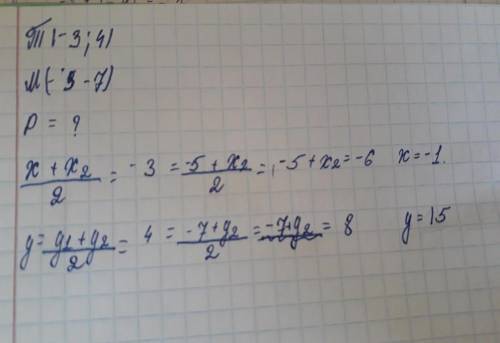 T(-3; 4)
M(-5 -7)
P = ?
x + x₂ / 2 = -3 = -5 + x₂ / 2 = -5 + x₂ = -6 x = -1.
y = y₁ + y₂ / 2 = 4 = -7 + y₂ / 2 = -7 + y₂ = 8 y = 15